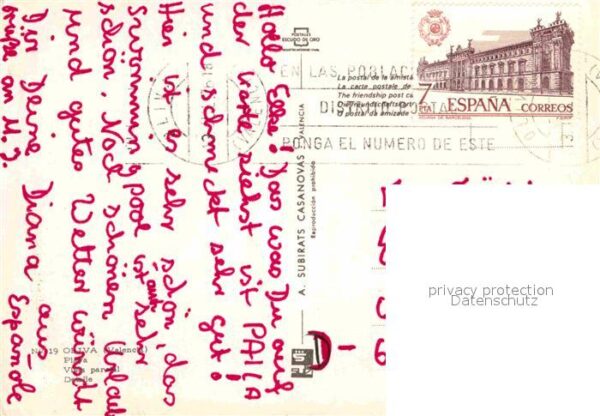 Hallo Elke! Das was Du auf
der Karte siehst ist PAILA
und schmeckt sehr gut!
Hier ist es sehr schön, das
Swimmingpool ist auch sehr
schön. Noch schönen Urlaub
und gutes Wetter wünscht
Dir Deine Diana aus
Españole
Gruß an M.J.
D-
Nº 19 OLIVA (Valencia)
Playa
Vista parcial
Detalle
POSTALES
ESCUDO DE ORO
A. SUBIRATS CASANOVAS VALENCIA
Reproducción prohibida
La postal de la amistad
La carte postale de
The friendship post ca
Die Freundschaftspost
O postal da amizade
EN LAS POBLACIO
DISTRITO POSTA
PONGA EL NUMERO DE ESTE
7
PTA
ESPAÑA
CORREOS
ADUANA DE BARCELONA
privacy protection
Datenschutz